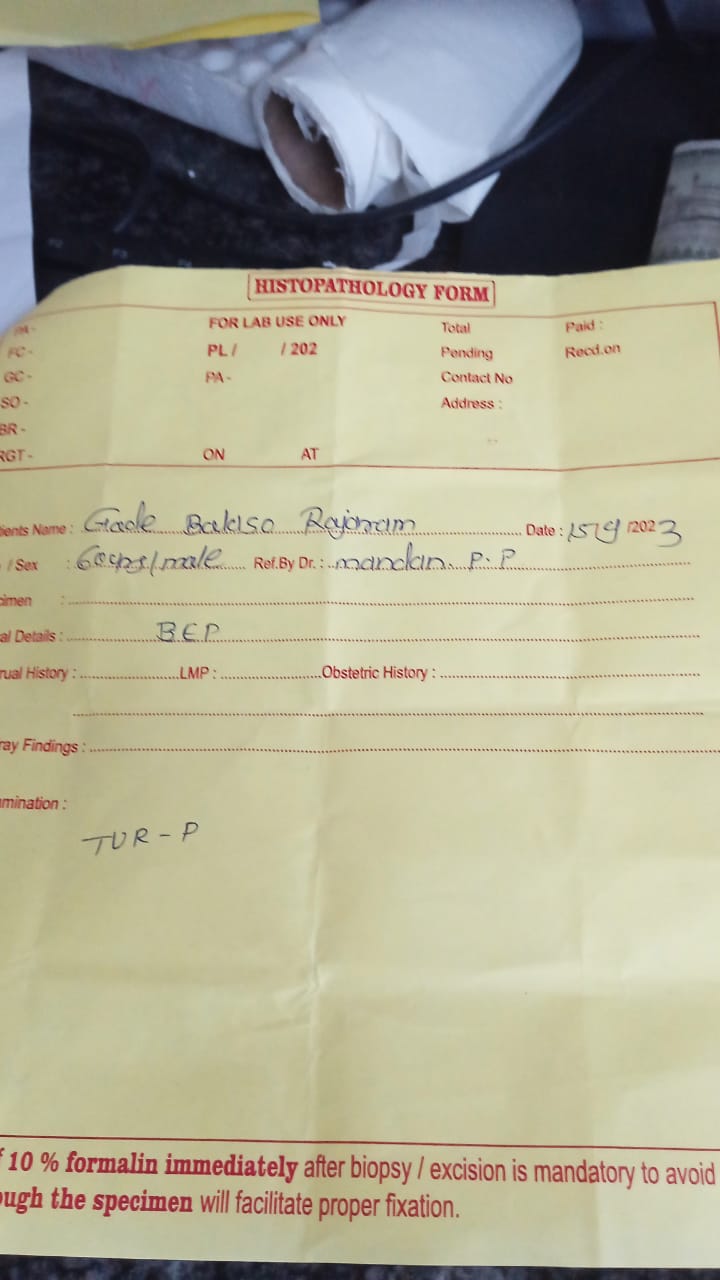 HISTOPATHOLOGY FORM
PA- FOR LAB USE ONLY Total Paid :
FC - PL / / 202 Pending Recd.on
GC - PA - Contact No
SO - Address :
BR -
RGT - ON AT
ients Name : Gade Rajaram Date : 15/9/2023
/ Sex : 60yrs/male Ref.By Dr. : mandan. P.P
cimen :
al Details : BEP
rual History : LMP : Obstetric History :
ray Findings :
mination :
TUR-P
f 10 % formalin immediately after biopsy / excision is mandatory to avoid
ough the specimen will facilitate proper fixation.